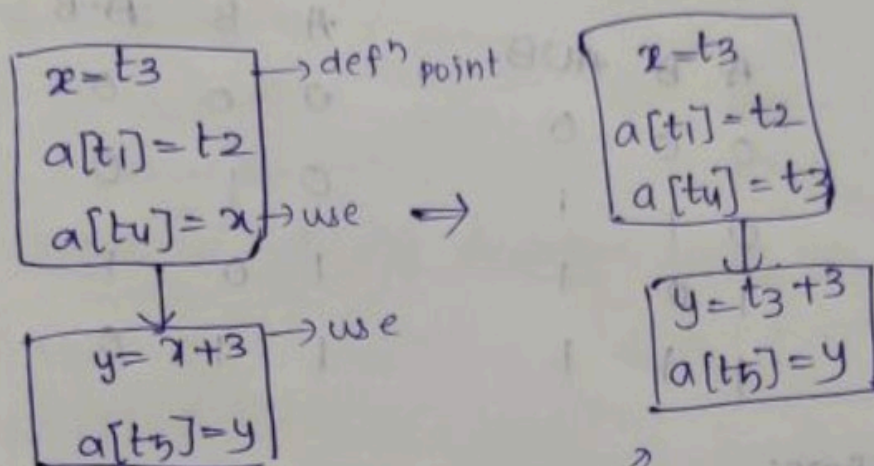 x=t3 → defⁿ point
a[t1]=t2
a[t4]=x → use
y=x+3 → use
a[t5]=y
⇒
x=t3
a[t1]=t2
a[t4]=t3
y=t3+3
a[t5]=y